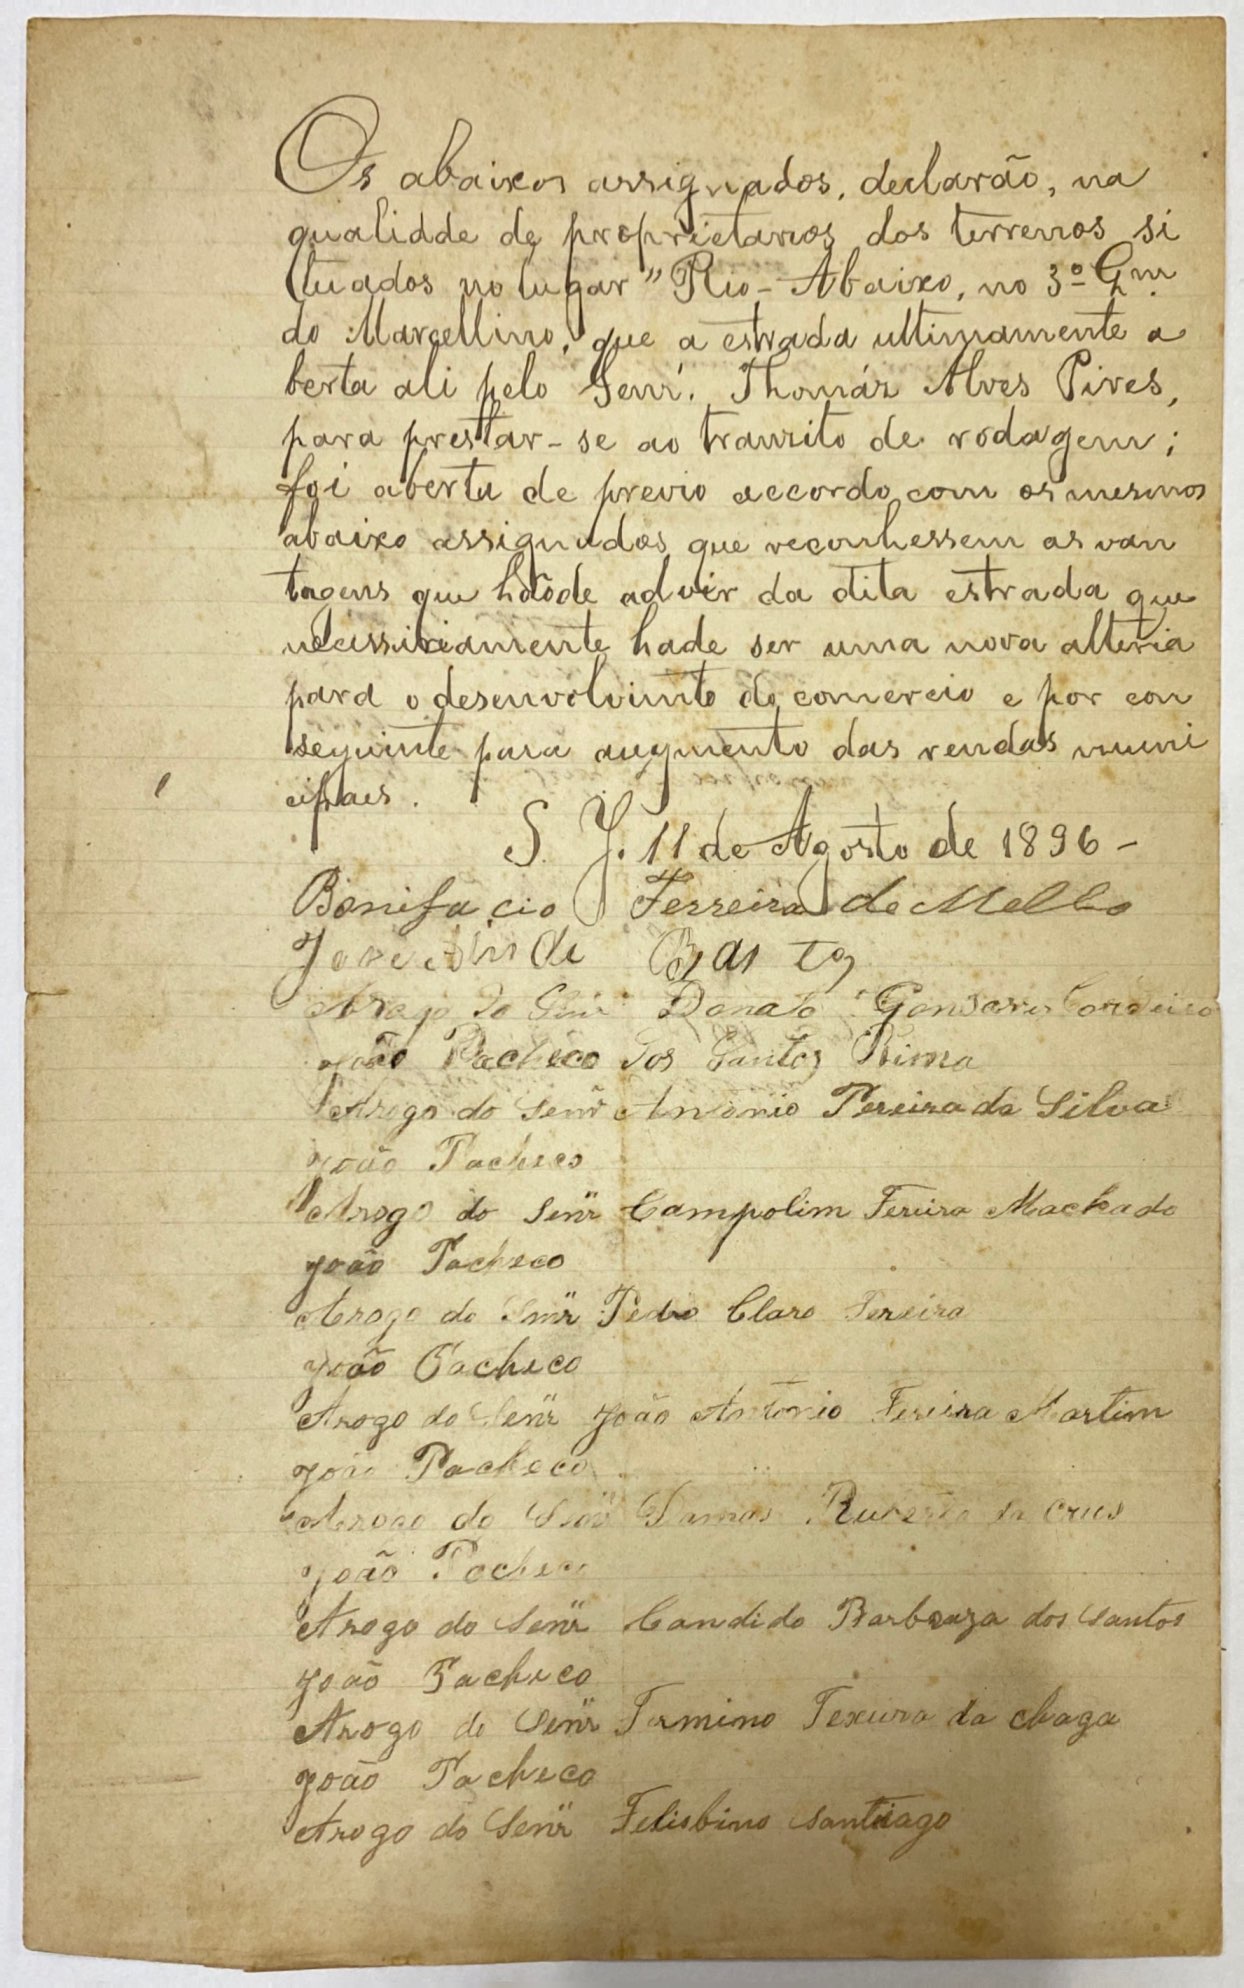 Os abaixos assignados, declarão, na
qualidde de proprietarios dos terrenos si
tuados no lugar "Rio-Abaixo, no 3º Qm
do Marcellino, que a estrada ultimamente a
berta ali pelo Senr. Thomáz Alves Pires,
para prestar-se ao tranzito de rodagem;
foi aberta de previo accordo com os mesmos
abaixo assignados que reconhessem as van
tagens que hãode advir da dita estrada que
necessiriamente hade ser uma nova alteria
para o desenvolvimto do comercio e por con
seguinte para augmento das rendas muni
cipaes.
S. J. 11 de Agosto de 1896-
Bonifacio Ferreira de Mello
Jose de Basto
Arogo do Senr Donato Gonsalves Cordeiro
João Pacheco dos Santos Lima
Arogo do Senr Antonio Pereira da Silva
João Pacheco
Arogo do Senr Campolim Fereira Machado
João Pacheco
Arogo do Senr Pedro Claro Fereira
João Pacheco
Arogo do Senr João Antonio Fereira Martim
João Pacheco
Arogo do Senr Damas da Crus
João Pacheco
Arogo do Senr Candido Barboza dos Santos
João Pacheco
Arogo do Senr Firmino Texeira da Chaga
João Pacheco
Arogo do Senr Felisbino Santiago